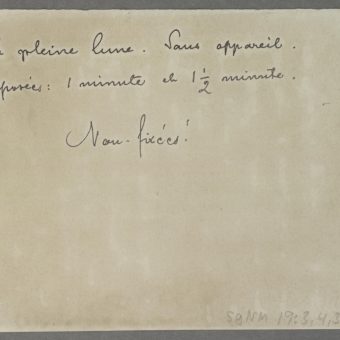 pleine lune. Sans appareil.
posées: 1 minute et 1 1/2 minute.
Non-fixées!
SgNM 1923,4,3